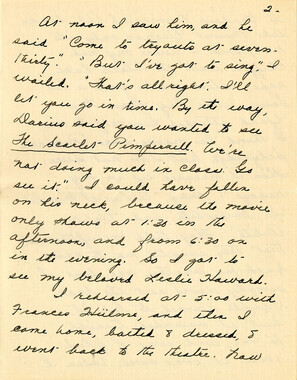 2-
At noon I saw him, and he
said "Come to tryouts at seven-
thirty." "But I've got to sing," I
wailed. "That's all right. I'll
let you go in time. By the way,
Darius said you wanted to see
The Scarlet Pimpernell. We're
not doing much in class. Go
see it." I could have fallen
on his neck, because the movie
only shows at 1:30 in the
afternoon, and from 6:30 on
in the evening. So I got to
see my beloved Leslie Howard.
I rehearsed at 5:00 with
Frances and then I
come home, & dressed, &
went back to the theatre. Naw